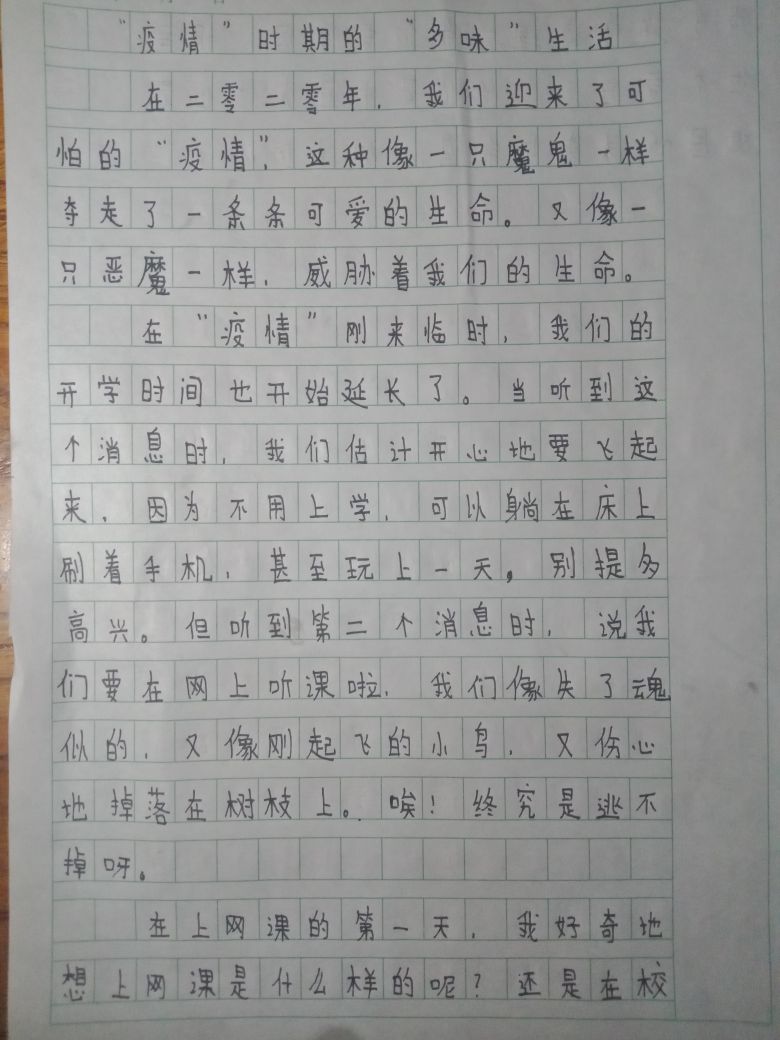 “疫情”时期的“多味”生活
在二零二零年，我们迎来了可
怕的“疫情”，这种像一只魔鬼一样
夺走了一条条可爱的生命。又像一
只恶魔一样，威胁着我们的生命。
在“疫情”刚来临时，我们的
开学时间也开始延长了。当听到这
个消息时，我们估计开心地要飞起
来，因为不用上学，可以躺在床上
刷着手机，甚至玩上一天，别提多
高兴。但听到第二个消息时，说我
们要在网上听课啦，我们像失了魂
似的，又像刚起飞的小鸟，又伤心
地掉落在树枝上。唉！终究是逃不
掉呀。
在上网课的第一天，我好奇地
想上网课是什么样的呢？还是在校